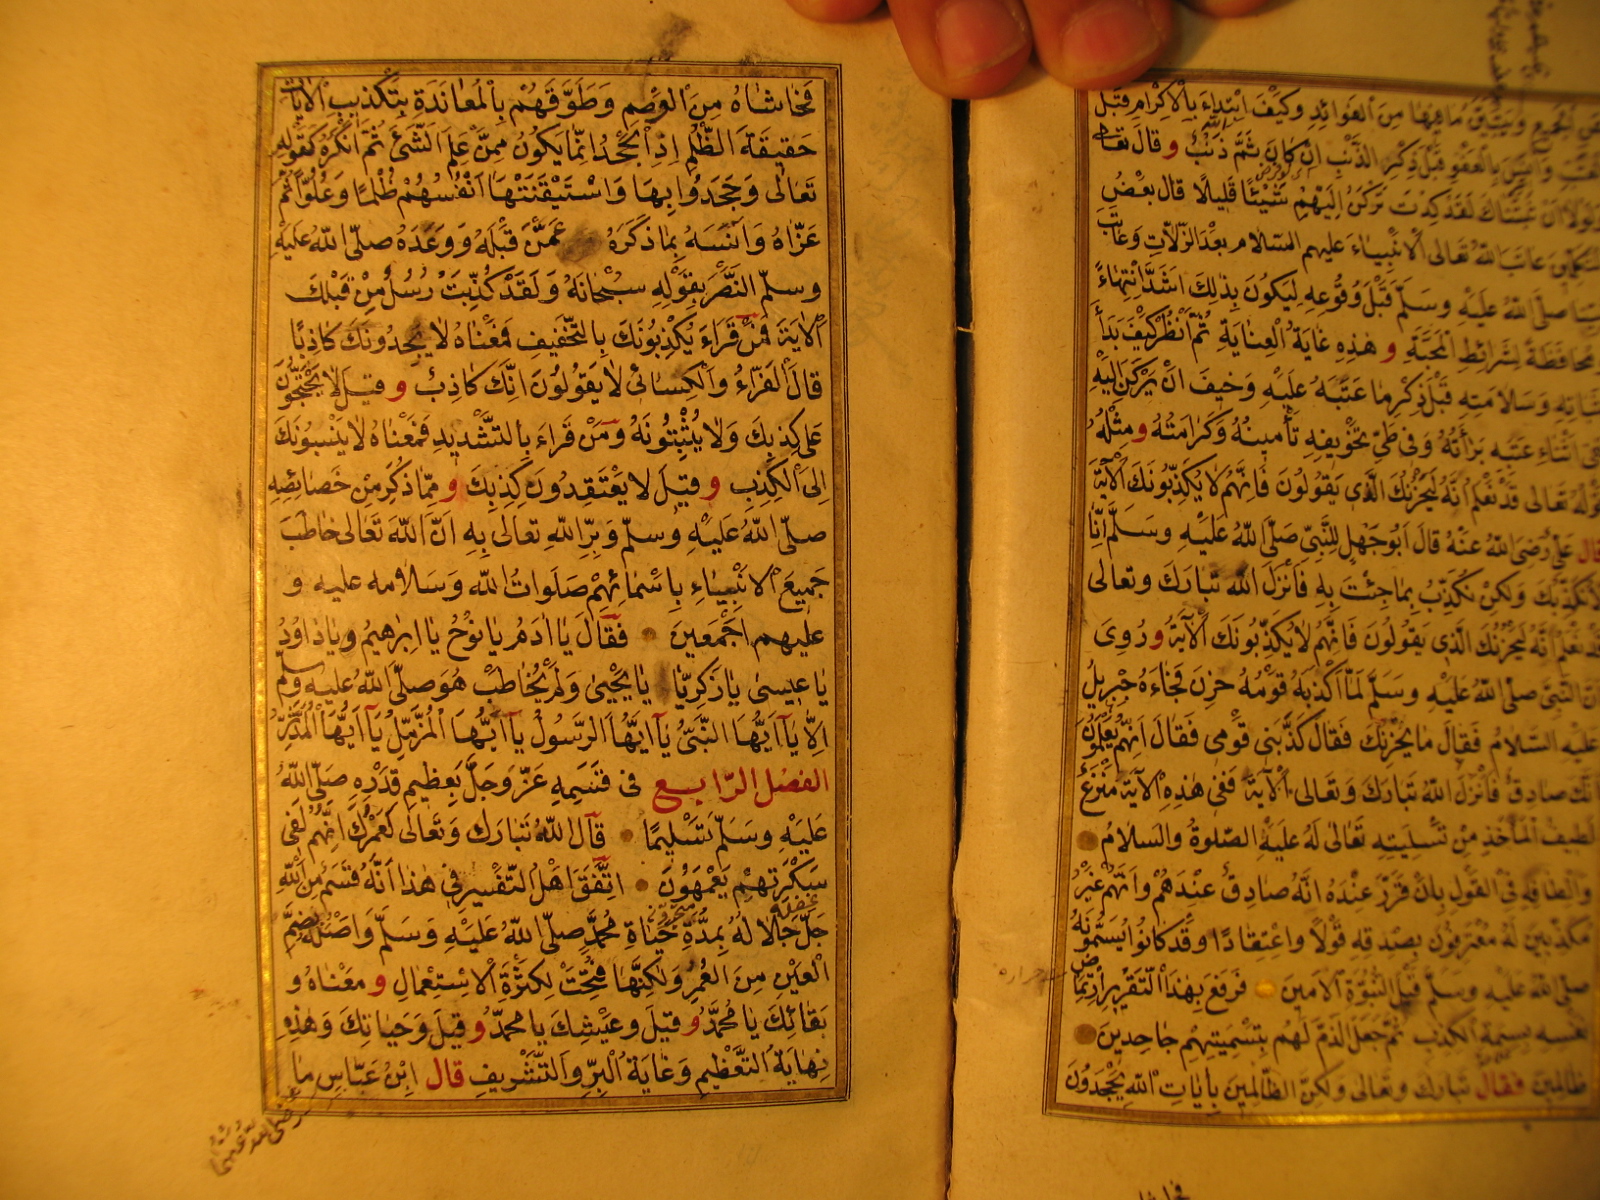 ما فيها من الفوائد وكيف ابتداء بالاكرام قبل
بالعفو قبل ذكر الذنب ان كان ثم ذنب و قال تعا
ولولا ان ثبتناك لقد كدت تركن اليهم شيئا قليلا قال بعض
المتكلمين عاتب الله تعالى الانبياء عليهم السلام بعد الزلات وعاتب
نبينا صلى الله عليه وسلم قبل وقوعه ليكون بذلك اشد انتهاء
ومحافظة لشرائط المحبة و هذه غاية العناية ثم انظر كيف بدأ
بثباته وسلامته قبل ذكر ما عتبه عليه وخيف ان يركن اليه
ففي اثناء عتبه برأته وفي طي تخويفه تأمينه وكرامته و مثله
قوله تعالى قد نعلم انه ليحزنك الذي يقولون فانهم لا يكذبونك الآية
قال علي رضي الله عنه قال ابو جهل للنبي صلى الله عليه وسلم انا
لا نكذبك ولكن نكذب بما جئت به فانزل الله تبارك وتعالى
قد نعلم انه ليحزنك الذي يقولون فانهم لا يكذبونك الآية و روى
ان النبي صلى الله عليه وسلم لما كذبه قومه حزن فجاءه جبريل
عليه السلام فقال ما يحزنك فقال كذبني قومي فقال انهم يعلمون
انك صادق فانزل الله تبارك وتعالى الآية ففي هذه الآية منزع
لطيف المأخذ من تسليته تعالى له عليه الصلوة والسلام
والطافه في القول بان قرر عنده انه صادق عندهم وانهم غير
مكذبين له معترفون بصدقه قولا واعتقادا وقد كانوا يسمونه
صلى الله عليه وسلم قبل النبوة الامين فرفع بهذا التقرير ارتماض
نفسه بسمة الكذب ثم جعل الذم لهم بتسميتهم جاحدين
ظالمين فقال تبارك وتعالى ولكن الظالمين بآيات الله يجحدون
فحاشاه من الوصم وطوقهم بالمعاندة بتكذيب الآيات
حقيقة الظلم اذ الجحد انما يكون ممن علم الشئ ثم انكره كقوله
تعالى وجحدوا بها واستيقنتها انفسهم ظلما وعلوا ثم
عزاه وآنسه بما ذكره عمن قبله ووعده صلى الله عليه
وسلم النصر بقوله سبحانه ولقد كذبت رسل من قبلك
الآية فمن قراء يكذبونك بالتخفيف فمعناه لا يجدونك كاذبا
قال الفراء والكسائى لا يقولون انك كاذب و قيل لا يحتجون
على كذبك ولا يثبتونه ومن قراء بالتشديد فمعناه لا ينسبونك
الى الكذب و قيل لا يعتقدون كذبك و مما ذكر من خصائصه
صلى الله عليه وسلم وبر الله تعالى به ان الله تعالى خاطب
جميع الانبياء باسمائهم صلوات الله وسلامه عليه و
عليهم اجمعين فقال يا ادم يا نوح يا ابرهيم ويا داود
يا عيسى يا زكريا يا يحيى ولم يخاطب هو صلى الله عليه وسلم
الا يا ايها النبى يا ايها الرسول يا ايها المزمل يا ايها المدثر
الفصل الرابع فى قسمه عز وجل بعظيم قدره صلى الله
عليه وسلم تسليما قال الله تبارك وتعالى لعمرك انهم لفى
سكرتهم يعمهون اتفق اهل التفسير فى هذا انه قسم من الله
جل جلاله بمدة حياة محمد صلى الله عليه وسلم واصله بضم
العين من العمر ولكنها فتحت لكثرة الاستعمال و معناه و
بقائك يا محمد و قيل وعيشك يا محمد و قيل وحياتك وهذه
نهاية التعظيم وغاية البر والتشريف قال ابن عباس ما
رضى الله عنهما